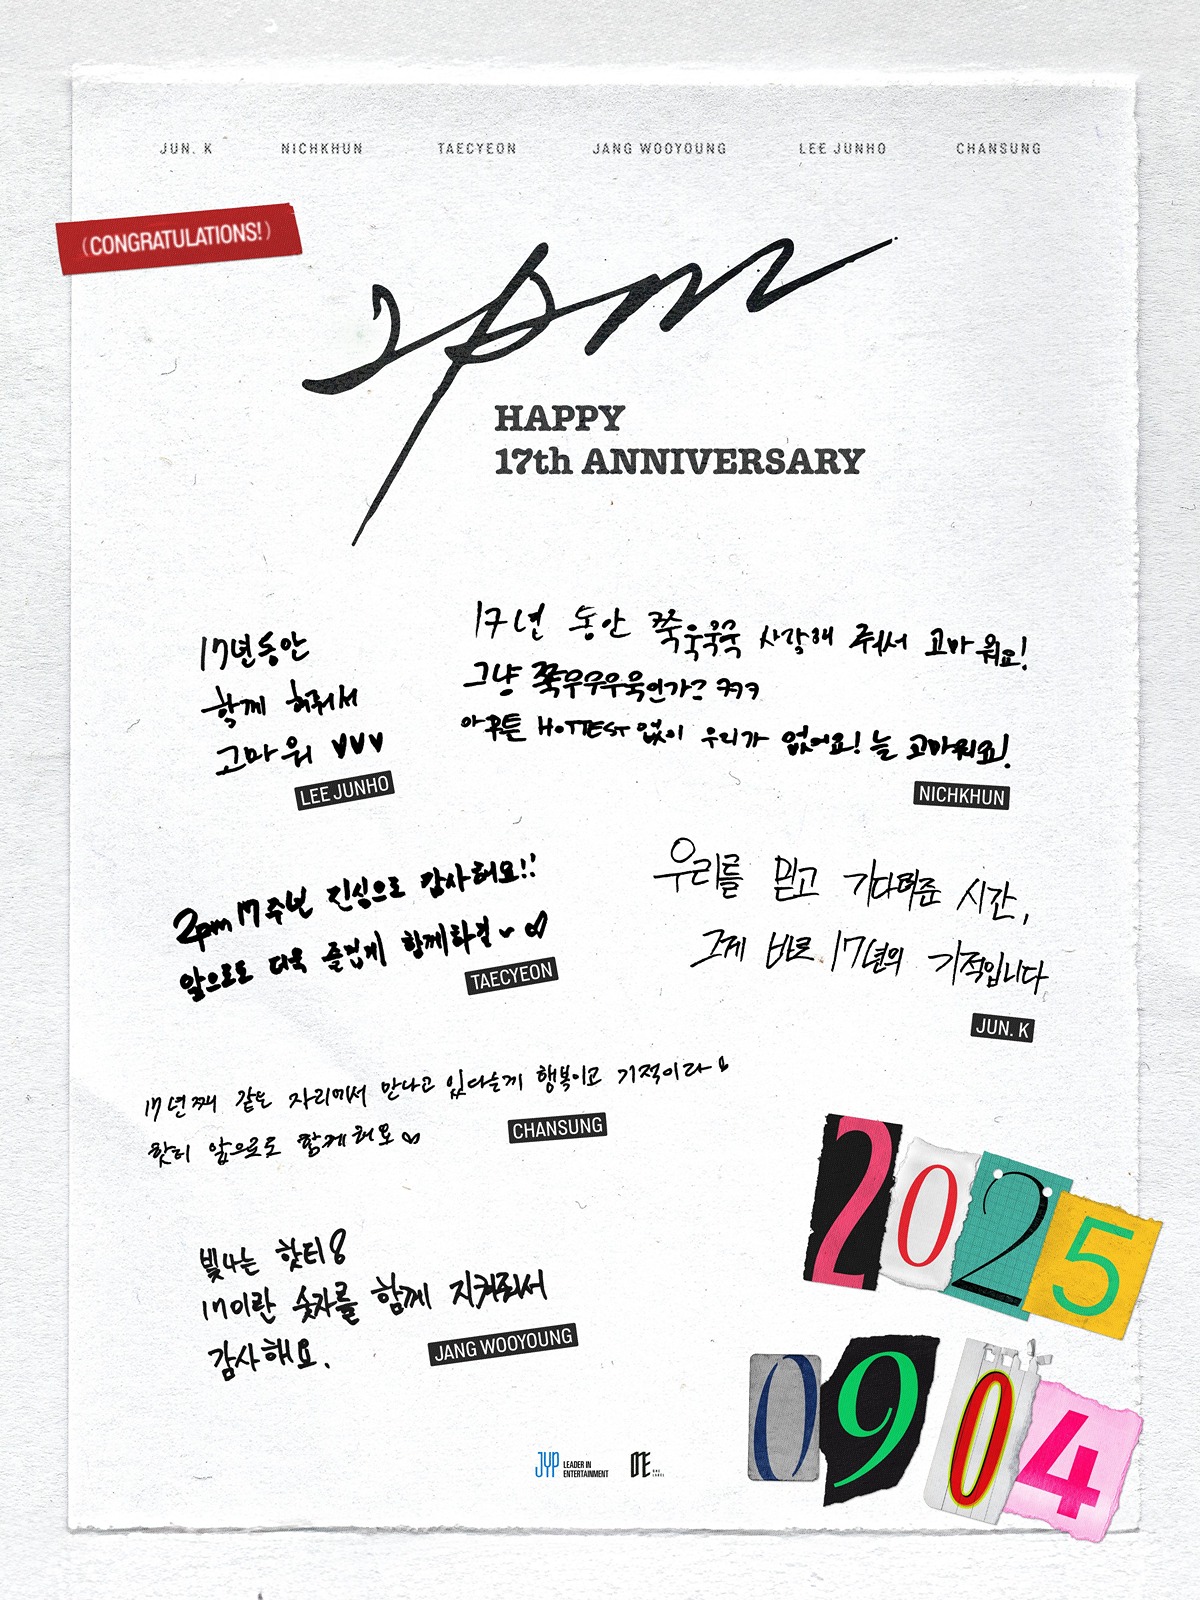 JUN. K NICHKHUN TAECYEON JANG WOOYOUNG LEE JUNHO CHANSUNG
(CONGRATULATIONS!)
2pm
HAPPY
17th ANNIVERSARY
17년동안
함께 해줘서
고마워 ♥♥♥
LEE JUNHO
17년 동안 쭉욱욱욱 사랑해 줘서 고마워요!
그냥 쭉우우우욱인가? ㅋㅋㅋ
아무튼 HOTTEST 없이 우리가 없어요! 늘 고마워요!
NICHKHUN
2pm 17주년 진심으로 감사해요!!
앞으로도 더욱 즐겁게 함께하길~♡
TAECYEON
우리를 믿고 기다려준 시간,
그게 바로 17년의 기적입니다
JUN. K
17년째 같은 자리에서 만나고 있다는게 행복이고 기적이라♡
핫티 앞으로도 함께해요♡
CHANSUNG
빛나는 핫티8
17이란 숫자를 함께 지켜줘서
감사해요.
JANG WOOYOUNG
2025
0904
JYP LEADER IN
ENTERTAINMENT